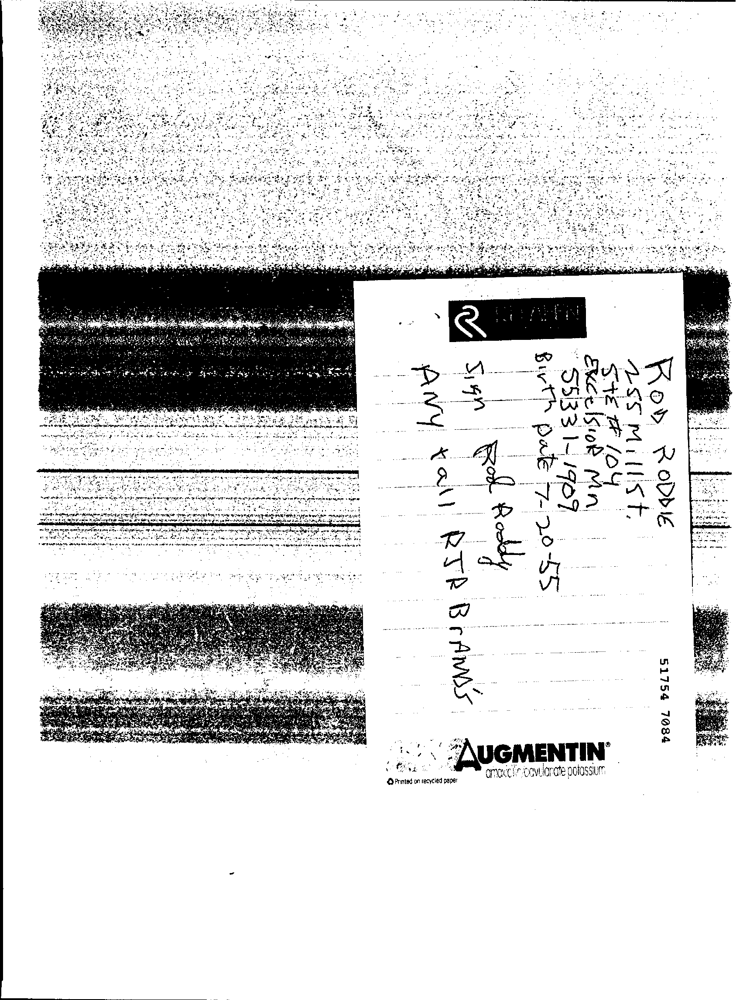 ROD RODDIE
255 Mill St.
STE # 104
Excelsior Mn
55331-1909
Birth Date 7-20-55
Sign Rod Roddy
ANY tall RJR BrANd's
51754 7084
AUGMENTIN®
potassium
Printed on recycled paper